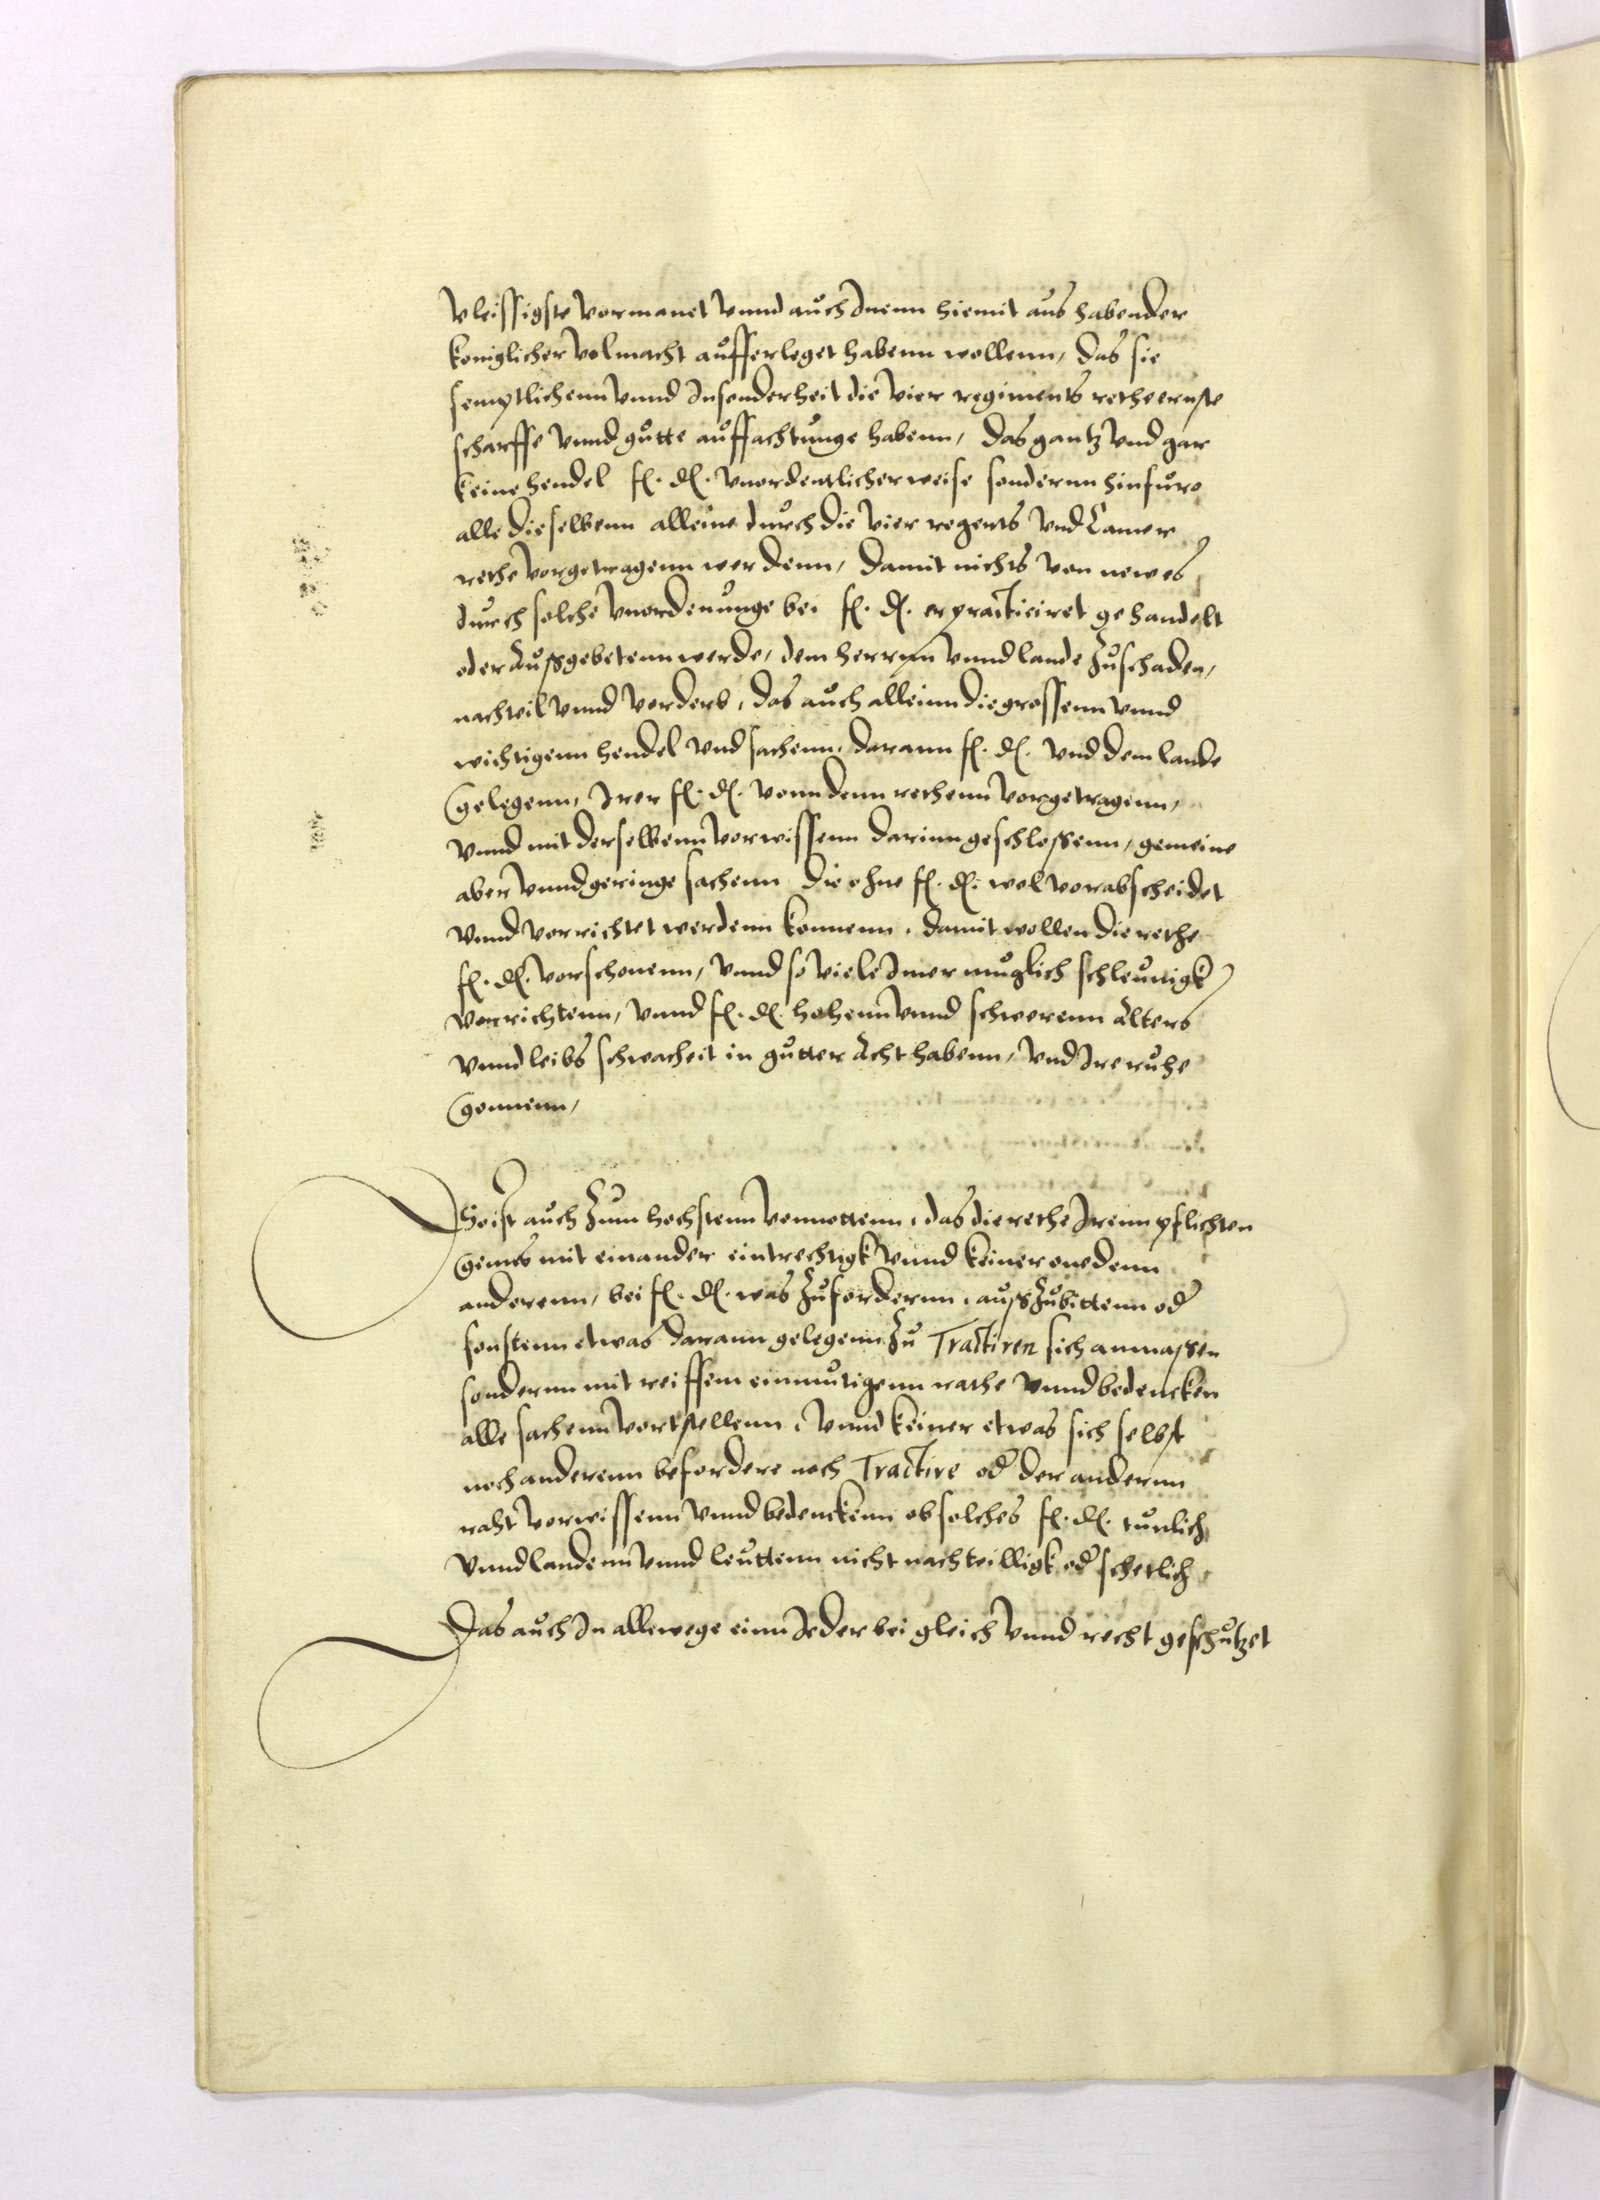 vleissigste vormanet vnnd auch Inenn hiemit aus habender
koniglicher volmacht aufferleget habenn wollenn, das sie
semptlichenn vnnd Insonderheit die vier regiments rethe ernste
scharffe vnnd gutte auffachtunge habenn, das gantz vnd gar
keine hendel f. d. vnordentlicher weise sondernn hinfuro
alle dieselbenn alleine durch die vier regents vnd Camer
rethe vorgetragenn werdenn, damit nichts von newes
durch solche vnordenunge bei f. d. erpracticiret gehandelt
oder Außgebetenn werde, dem herrnn vnnd lande Zuschaden,
nachteil vnnd vorderb, das auch alleinn die grossenn vnnd
wichtigenn hendel vnd sachenn, darann f. d. vnd dem lande
gelegenn, Irer f. d. vonn denn rethenn vorgetragenn,
vnnd mit derselbenn vorwissenn darinn geschloßenn, gemeine
aber vnnd geringe sachenn die ohne f. d. wol vorabscheidet
vnnd vorrichtet werdenn konnenn, damit wollen die rethe
f. d. vorschonenn, vnnd so viele Imer muglich schleunigk
vorrichtenn, vnnd f. d. hohenn vnnd schwerenn Alters
vnnd leibs schwacheit in gutter Acht habenn, vnd Ire ruhe
gonnenn,
So ist auch Zum hochstenn vonnottenn, das die rethe Irenn pflichten
gemes mit einander eintrechtigk vnnd keiner one denn
anderenn, bei f. d. was Zufordernn, außZubittenn od
sonstenn etwas darann gelegenn Zu Tractiren sich anmaßen
sondernn mit reiffem einmutigenn rathe vnnd bedencken
alle sachenn vortstellenn, vnnd keiner etwas sich selbst
noch anderenn befordere noch Tractire od der andernn
raht vorwissenn vnnd bedenckenn ob solches f. d. tunlich
vnnd landenn vnnd leuttenn nicht nachteilligk od schetlich,
Das auch In allewege einn Jeder bei gleich vnnd recht geschutzet